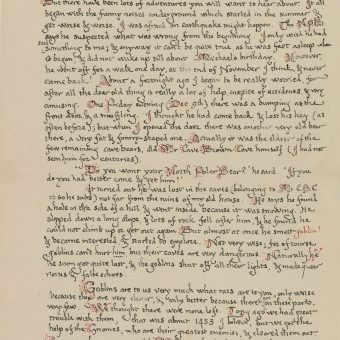 But there have been lots of adventures you will want to hear about. It all
began with the funny noises underground which started in the summer &
got worse & worse. I was afraid an earthquake might happen. The NPB
says he suspected what was wrong from the beginning. I only wish he had
said something to me; & anyway it can't be quite true, as he was fast asleep when
it began & did not wake up till about Michael's birthday. However
he went off for a walk one day, at the end of November I think, & never
came back! About a fortnight ago I began to be really worried, for
after all the dear old thing is really a lot of help, in spite of accidents, & very
amusing. One Friday evening (Dec 9th) there was a bumping at the
front door & a snuffling. I thought he had come back & lost his key (as
often before); but when I opened the door there was another very old bear
there, a very fat & funny-shaped one. Actually it was the eldest of the
few remaining cave bears, old Mr Cave Brown Cave himself (I had not
seen him for centuries)
Do you want your North Polar Bear? he said. If you
do you had better come & get him!'
It turned out he was lost in the caves (belonging to Mr CBC
or so he says) not far from the ruins of my old house. He says he found
a hole in the side of a hill & went inside because it was snowing. He
slipped down a long slope, & lots of rock fell after him, & he found he
could not climb up or get out again. But almost at once he smelt goblin!
& became interested, & started to explore. Not very wise; for of course
goblins can't hurt him but their caves are very dangerous. Naturally he
soon got quite lost, & the goblins shut off all their lights, & made queer
noises & false echoes
Goblins are to us very much what rats are to you, only worse
because they are very clever, & only better because there are, in these parts,
very few. We thought there were none left. Long ago we had great
trouble with them, that was about 1453 I believe, but we got the
help of the Gnomes, who are their greatest enemies, & cleared them out.